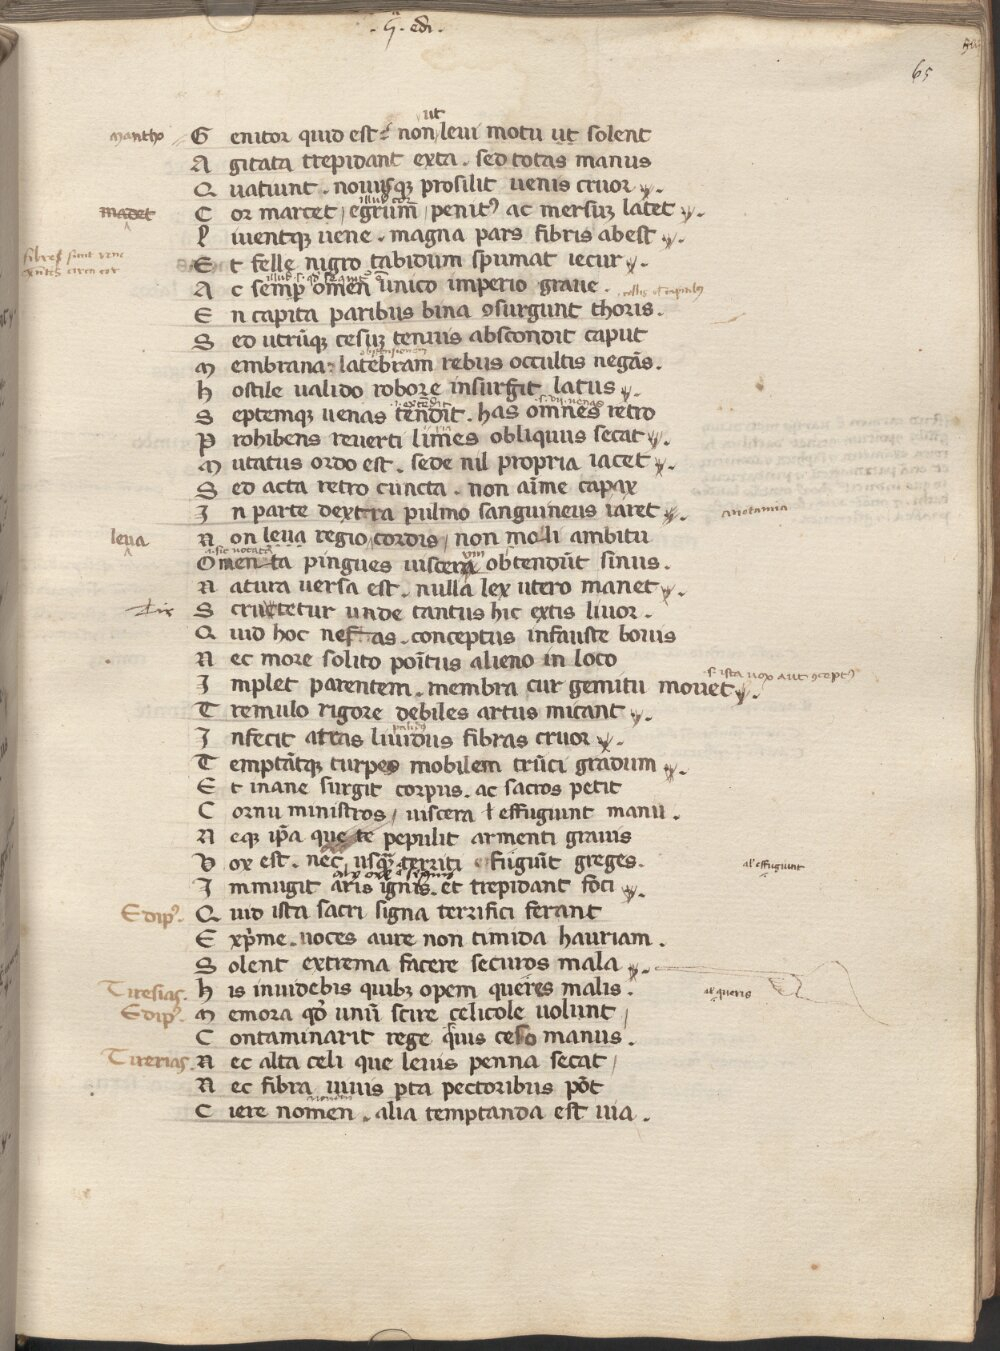 .4ª. edi.
65
ut
mantho G enitor quid est? non leui motu ut solent
A gitata trepidant exta. sed totas manus
Q uatiunt. nouusqꝫ prosilit uenis cruor.
illud cor
madet C or marcet, egrum, penitꝰ ac mersuꝫ latet.
P iuentqꝫ uene. magna pars fibris abest.
fibre sunt vene
circa cor
E t felle nigro tabidum spumat iecur.
A c semꝑ omen unico imperio graue.
E n capita paribus bina ꝯsurgunt thoris.
S ed utrūqꝫ cesuꝫ tenuis abscondit caput
M embrana: latebram rebus occultis negās.
h ostile ualido robore insurgit latus.
.s. vij. uenas
S eptemqꝫ uenas tendit. has omnes retro
uia
P rohibens reuerti limes obliquus secat.
M utatus ordo est. sede nil propria iacet.
S ed acta retro cuncta. non aīme capax
I n parte dextra pulmo sanguineus iaret. anotamia
leua N on leua regio cordis, non molli ambitu
O menta pingues uiscera obtendūt sinus.
N atura uersa est. nulla lex utero manet.
S crutetur unde tantus hic extis liuor.
Q uid hoc nefas. conceptus infauste bouis
N ec more solito poītus alieno in loco
.s. ista uox aut ꝯceptꝰ
I mplet parentem. membra cur gemitu mouet.
T remulo rigore debiles artus micant.
I nfecit atras liuidus fibras cruor.
T emptātqꝫ turpes mobilem trūci gradum.
E t inane surgit corpus. ac sacros petit
C ornu ministros, uiscera effugiunt manu.
N eqꝫ ip̄a que te pepulit armenti grauis
V ox est. nec usqꝫ territi fugiūt greges. al' effugiunt
I mmugit aris ignis. et trepidant foci.
Edipꝰ. Q uid ista sacri signa terrifici ferant
E xp̄me. uoces aure non timida hauriam.
S olent extrema facere securos mala.
Tiresias. h is inuidebis quibꝫ opem queres malis. al' queris
Edipꝰ. M emora qđ unū scire celicole uolunt,
C ontaminarit rege quis ceso manus.
Tirerias. N ec alta celi que leuis penna secat,
N ec fibra uiuis p̄ta pectoribus pōt
C iere nomen. alia temptanda est uia.